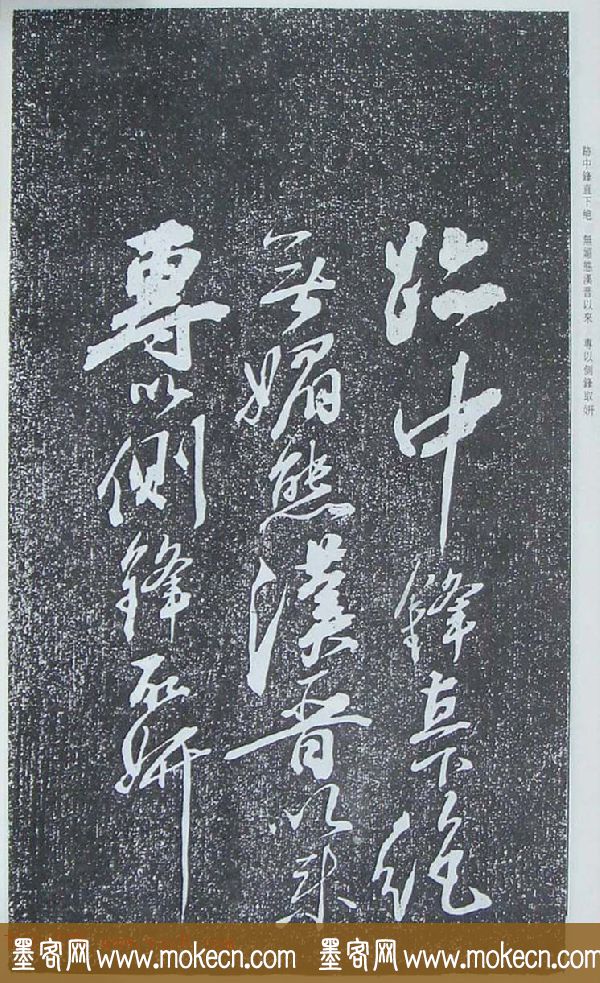 跡中鋒直下絶
無媚態漢晋以来
專以側鋒取妍
跡中鋒直下絶 無媚態漢晋以來 專以側鋒取妍
墨客网 www.mokecn.com 墨客网 www.mokecn.com